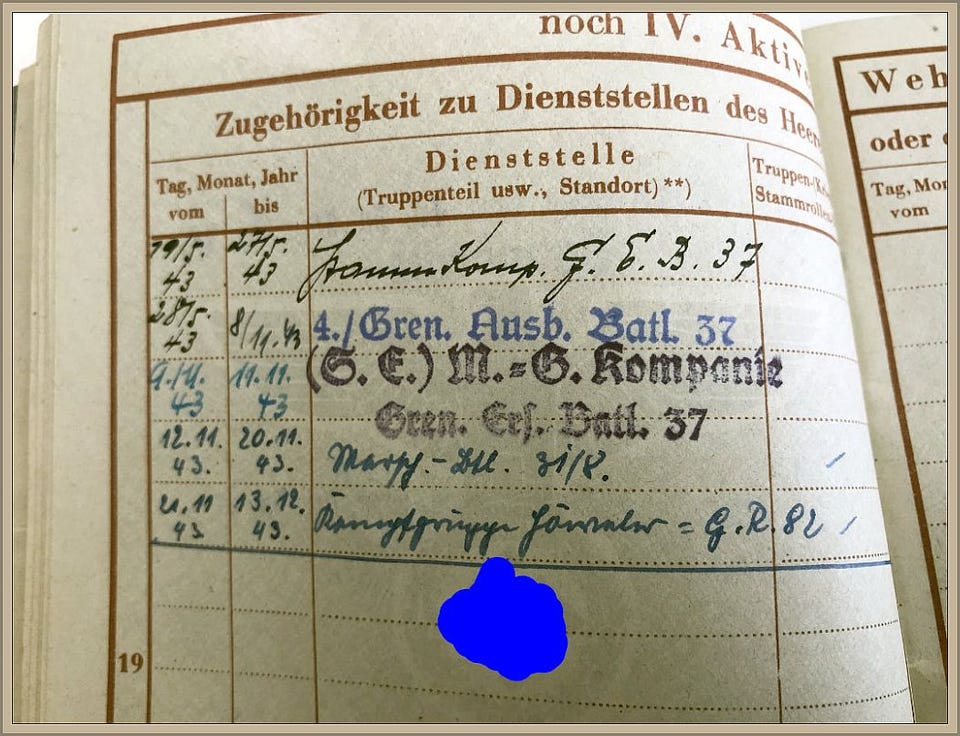 noch IV. Aktive
Zugehörigkeit zu Dienststellen des Heer
Tag, Monat, Jahr
vom bis
Dienststelle
(Truppenteil usw., Standort)**)
Truppen-
Stammrollen
19/5. 43 27/5. 43 Stamm Komp. G. E. B. 37
28/5. 43 8/11.43 4./Gren. Ausb. Batl. 37
9./11. 43 11.11. 43 (S. E.) M.=G. Kompanie
Gren. Ers. Batl. 37
12.11. 43. 20.11. 43. Marsch.-Btl. 31/8.
21.11 43 13.12. 43. Kampfgruppe = G.R. 82
19
Weh
oder
Tag, Mon
vom